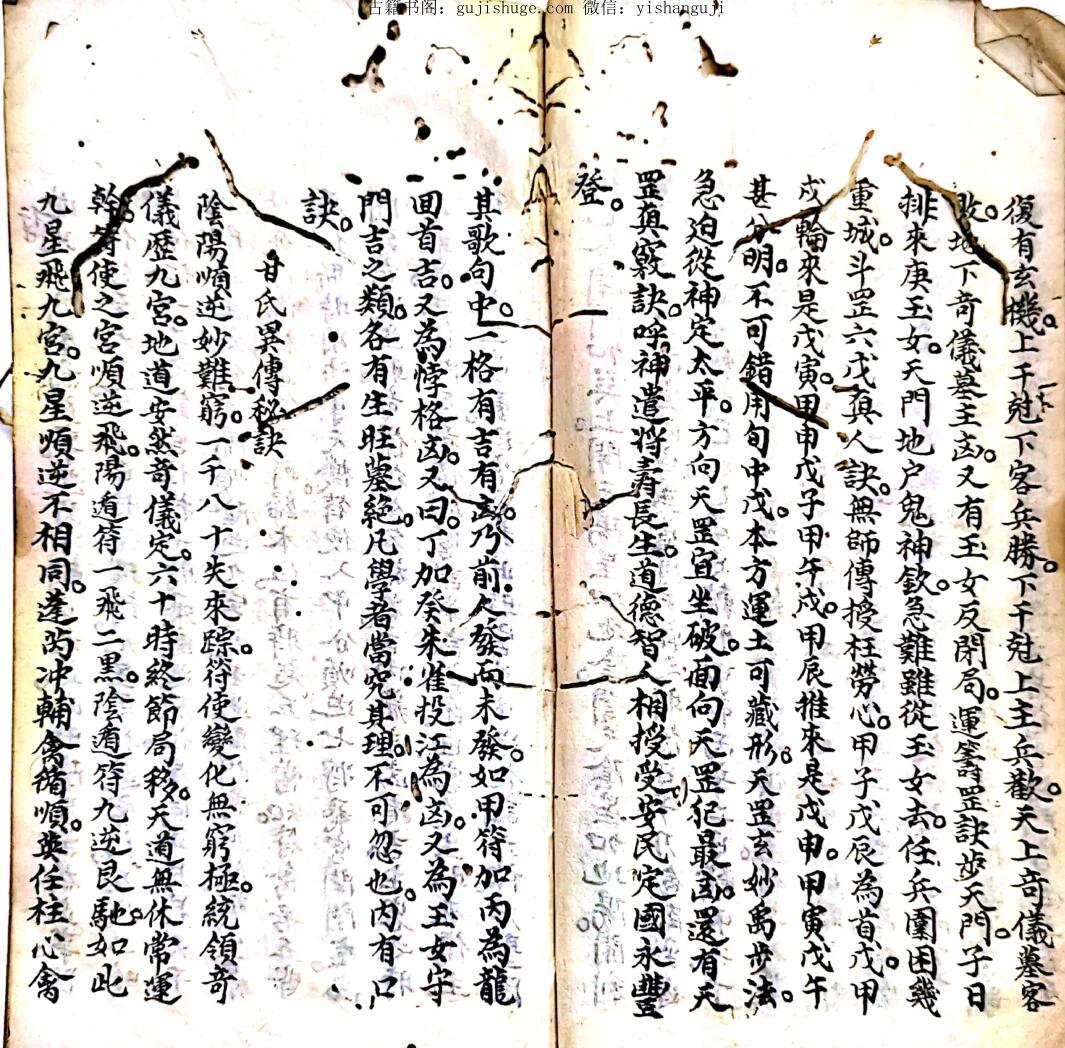 古籍书阁：gujishuge.com 微信：yishanguji
復有玄機。上干尅下客兵勝。下干尅上主兵歡。天上奇儀墓客
敗。地下奇儀墓主凶。又有玉女反閉局。運籌罡訣步天門。子日
排來庚玉女。天門地户鬼神欽。急難雖從玉女去。任兵圍困幾
重城。斗罡六戊真人訣。無師傳授枉勞心。甲子戊辰為首戊。甲
戌輪來是戊寅。甲申戊子甲午戊。甲辰推來是戊申。甲寅戊午
甚分明。不可錯用旬中戊。本方運土可藏形。天罡玄妙禹步法。
急迫從神定太平。方向天罡宜坐破。面向天罡犯最凶。還有天
罡真竅訣。呼神遣将壽長生。道德智人相授受。安民定國永豐
登。
其歌句中。一格有吉有凶。乃前人發而未發。如甲符加丙為龍
回首吉。又為悖格凶。又曰。丁加癸朱雀投江為凶。又為玉女守
門吉之類。各有生旺墓絶。凡學者當究其理。不可忽也。内有口
訣。
甘氏異傳秘訣
陰陽順逆妙難窮。一千八十失來踪。符使變化無窮極。統領奇
儀歷九宫。地道安然奇儀定。六十時終節局移。天道無休常運
幹。符使之宫順逆飛。陽遁符一飛二黑。陰遁符九逆艮馳。如此
九星飛九宫。九星順逆不相同。蓬芮冲輔禽猶順。英任柱心禽